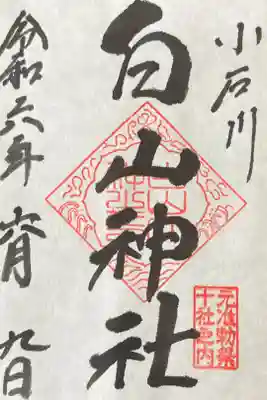 小石川
白山神社
元准勅祭
十社之内
令和六年六月九日